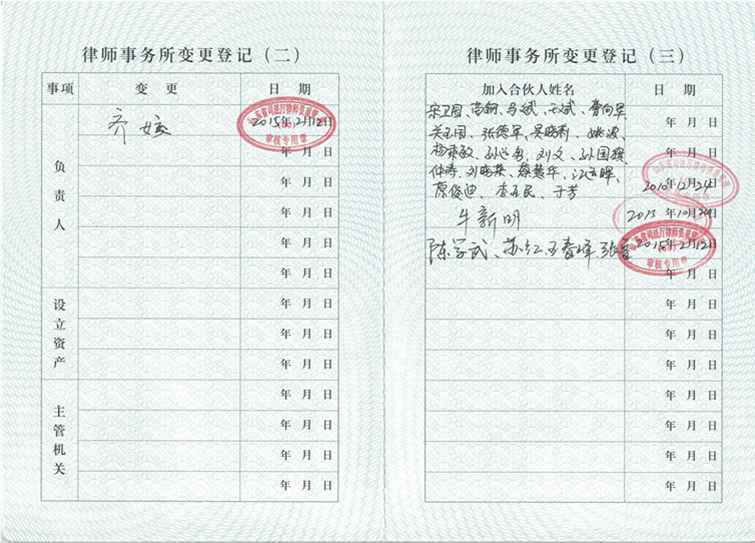 律师事务所变更登记（二）
事项 变更 日期
负责人
齐 2015年2月12日
年 月 日
年 月 日
年 月 日
年 月 日
年 月 日
年 月 日
设立资产
年 月 日
年 月 日
年 月 日
主管机关
年 月 日
年 月 日
年 月 日
年 月 日
审核专用章
律师事务所变更登记（三）
加入合伙人姓名 日期
宋卫国、 马斌、王斌、曹向军 年 月 日
关玉国、张德军、 年 月 日
孙 刘文、孙国 年 月 日
仲涛、刘晓英、蔡慧华、江玉晖、 2010年12月24日
原俊迪、李玉民、于芳
牛新明 2013年10月30日
陈学武、苏红、王春峰、张 2015年2月12日
审核专用章
年 月 日
年 月 日
年 月 日
年 月 日
年 月 日
年 月 日
年 月 日
年 月 日